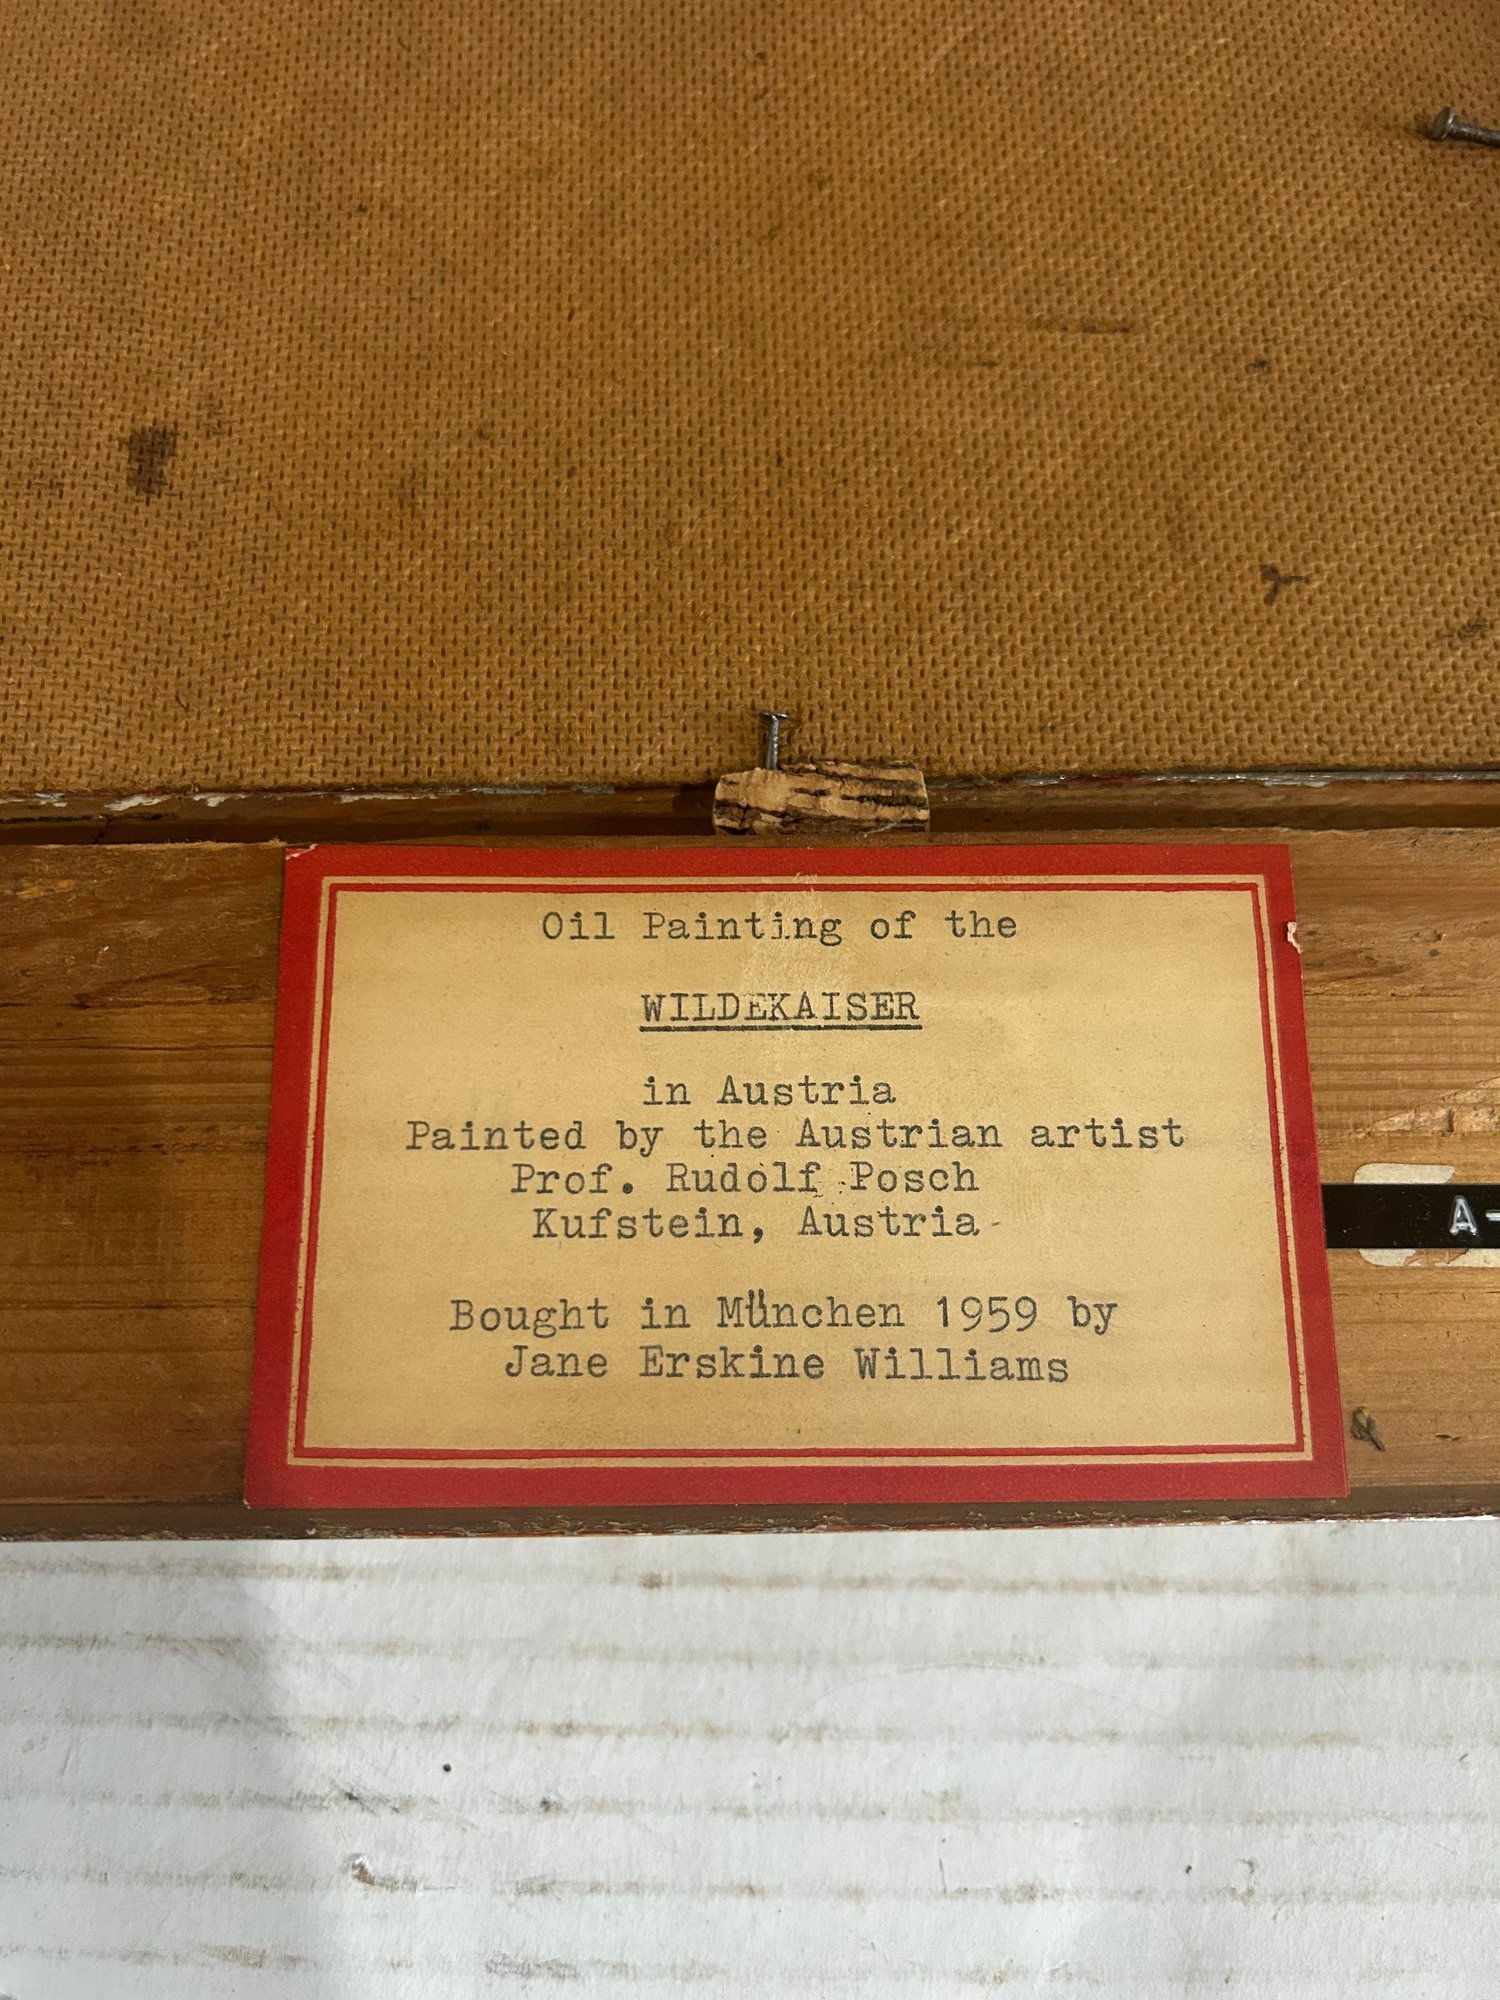 Oil Painting of the
WILDEKAISER
in Austria
Painted by the Austrian artist
Prof. Rudolf Posch
Kufstein, Austria
Bought in München 1959 by
Jane Erskine Williams
A-